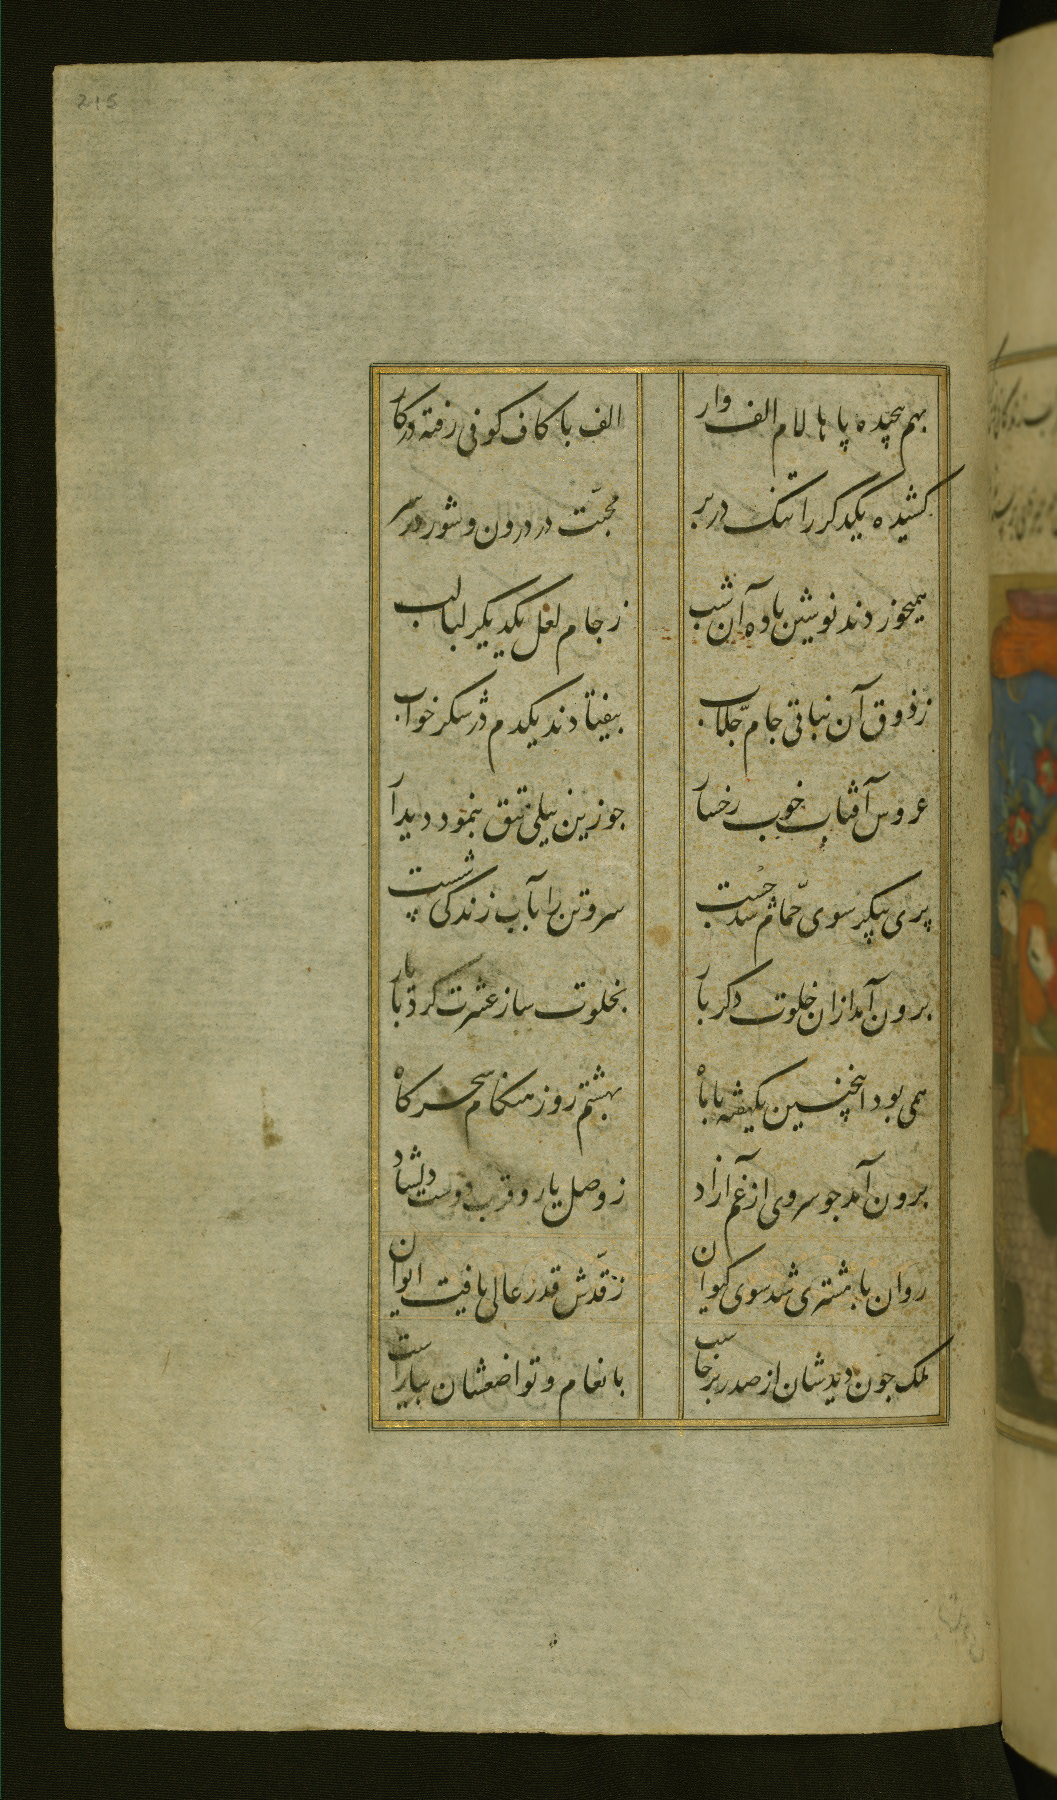 215
بهم پیچیده پاها لام الف وار
الف با کاف کوفی رفته در کار
کشیده یکدکر را تنک در بر
محبّت در درون و شور در سر
همیخوردند نوشین باده آن شب
ز جام لعل یکدیگر لبالب
ز ذوق آن نباتی جام جلّاب
بیفتادند یکدم در شکر خواب
عروس آفتاب خوب رخسار
جو زین نیلی تتق بنمود دیدار
پری پیکر سوی حمّام شد جست
سر و تن را بآب زندکی شست
برون آمد ازان خلوت دکر بار
بخلوت ساز عشرت کرد با یار
همی بود اینچنین یکهفته با ماه
بهشتم روز هنکام سحرکاه
برون آمد جو سروی از غم آزاد
ز وصل یار و قرب دوست دلشاد
روان با مشتری شد سوی کیوان
ز قدّش قدر عالی یافت ایوان
ملک جون دید شان از صدر برخاست
بانعام و تواضعشان بیاراست